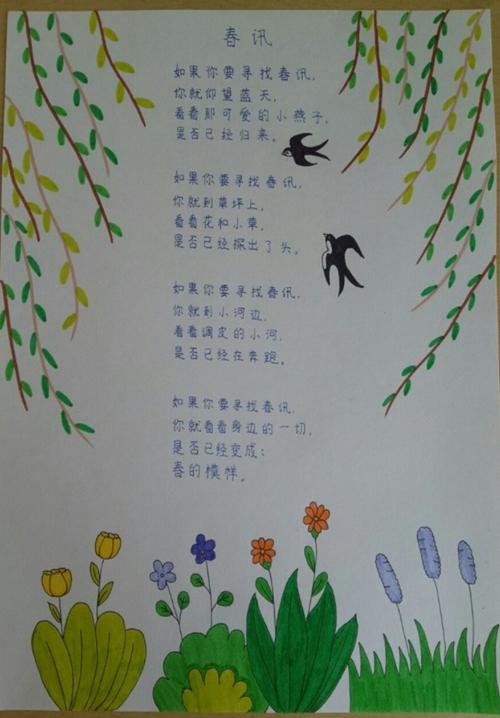 春讯
如果你要寻找春讯,
你就仰望蓝天,
看看那可爱的小燕子,
是否已经归来。
如果你要寻找春讯,
你就到草坪上,
看看花和小草,
是否已经探出了头。
如果你要寻找春讯,
你就到小河边,
看看调皮的小河,
是否已经在奔跑。
如果你要寻找春讯,
你就看看身边的一切,
是否已经变成:
春的模样。